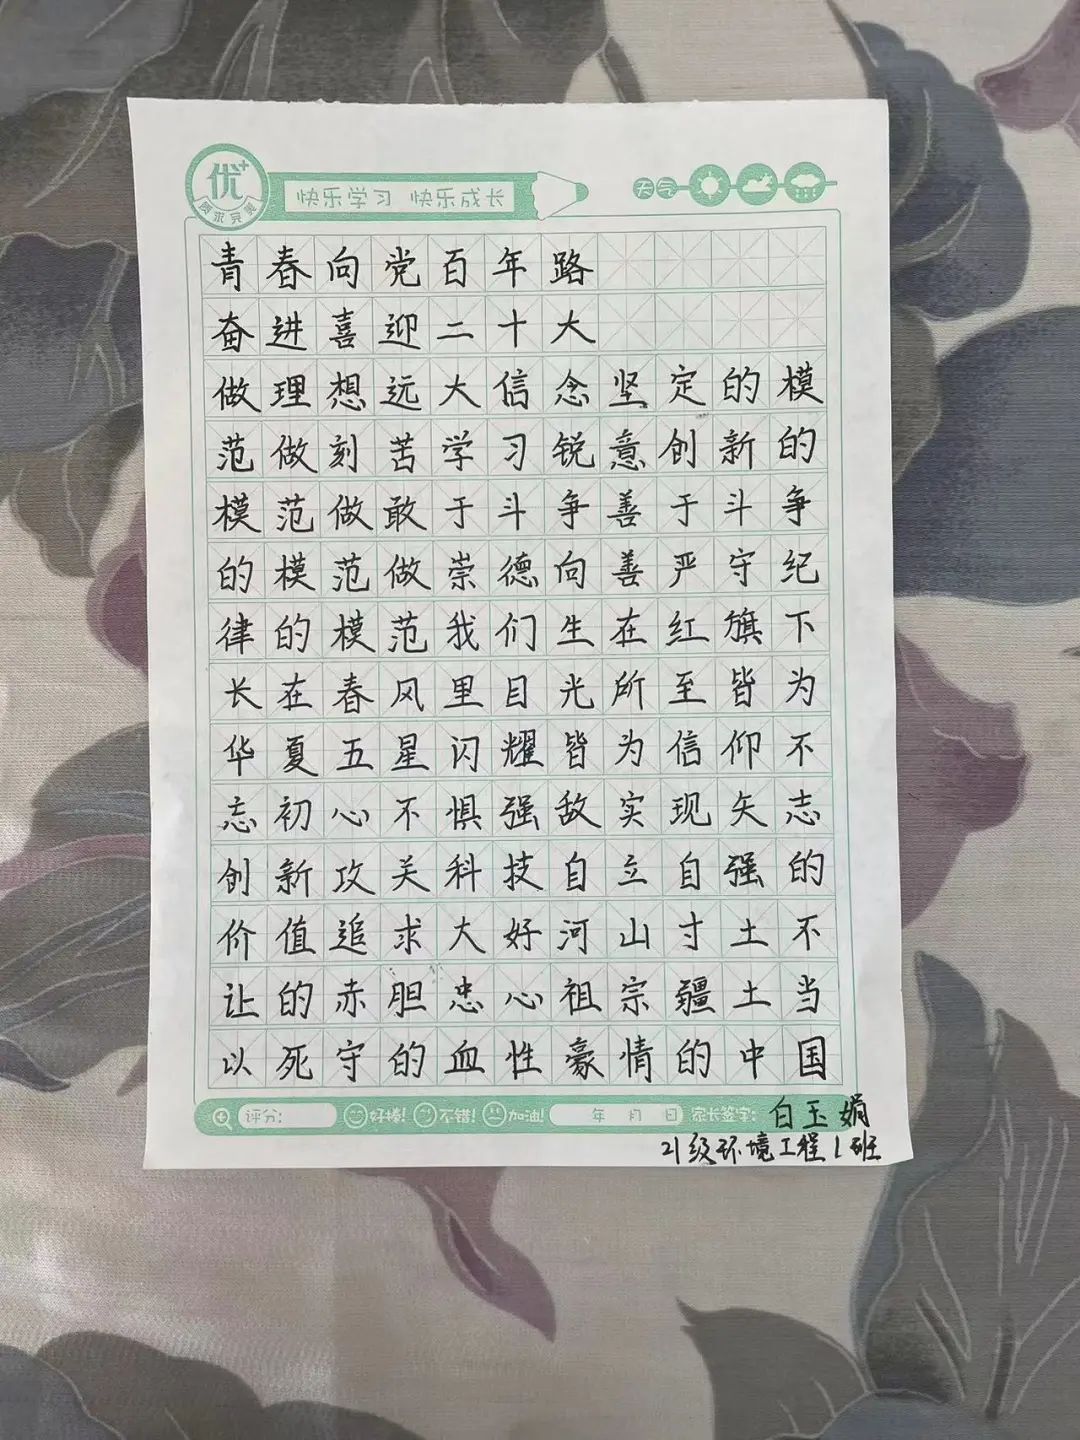 优+
追求完美
快乐学习 快乐成长
天气
青春向党百年路
奋进喜迎二十大
做理想远大信念坚定的模
范做刻苦学习锐意创新的
模范做敢于斗争善于斗争
的模范做崇德向善严守纪
律的模范我们生在红旗下
长在春风里目光所至皆为
华夏五星闪耀皆为信仰不
忘初心不惧强敌实现矢志
创新攻关科技自立自强的
价值追求大好河山寸土不
让的赤胆忠心祖宗疆土当
以死守的血性豪情的中国
评分: 好棒! 不错! 加油! 年 月 日 家长签字: 白玉娟
21级环境工程1班